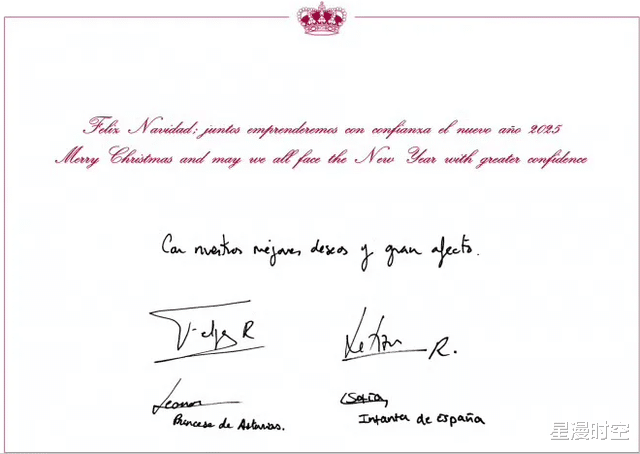 Feliz Navidad; juntos emprenderemos con confianza el nuevo año 2025
Merry Christmas and may we all face the New Year with greater confidence
Con nuestros mejores deseos y gran afecto.
Felipe R
Letizia R.
Leonor
Princesa de Asturias.
Sofía
Infanta de España
星漫时空